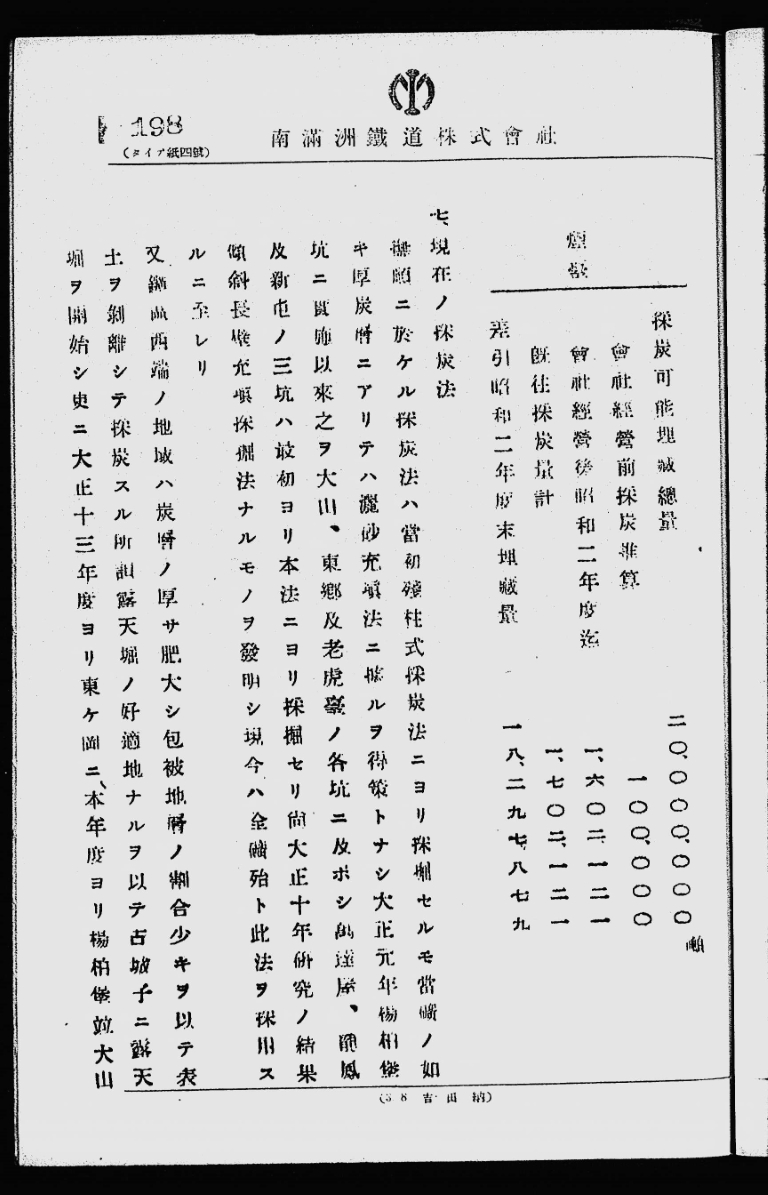 198
(タイプ紙四號)
南滿洲鐵道株式會社
煙臺
採炭可能埋藏總量 二〇、〇〇〇、〇〇〇噸
會社經營前採炭推算 一〇〇、〇〇〇
會社經營後昭和二年度迄 一、六〇二、一二一
既往採炭量計 一、七〇二、一二一
差引昭和二年度末埋藏量 一八、二九七、八七九
七、現在ノ採炭法
撫順ニ於ケル採炭法ハ當初殘柱式採炭法ニヨリ採掘セルモ當礦ノ如
キ厚炭層ニアリテハ灑砂充塡法ニ據ルヲ得策トナシ大正元年楊柏堡
坑ニ實施以來之ヲ大山、東鄉及老虎臺ノ各坑ニ及ボシ萬達屋、龍鳳
及新屯ノ三坑ハ最初ヨリ本法ニヨリ採掘セリ尙大正十年硏究ノ結果
傾斜長壁充塡採掘法ナルモノヲ發明シ現今ハ全礦殆ト此法ヲ採用ス
ルニ至レリ
又鑛區西端ノ地域ハ炭層ノ厚サ肥大シ包被地層ノ割合少キヲ以テ表
土ヲ剝離シテ採炭スル所謂露天堀ノ好適地ナルヲ以テ古城子ニ露天
堀ヲ開始シ更ニ大正十三年度ヨリ東ケ岡ニ、本年度ヨリ楊柏堡竝大山
(38 吉田納)